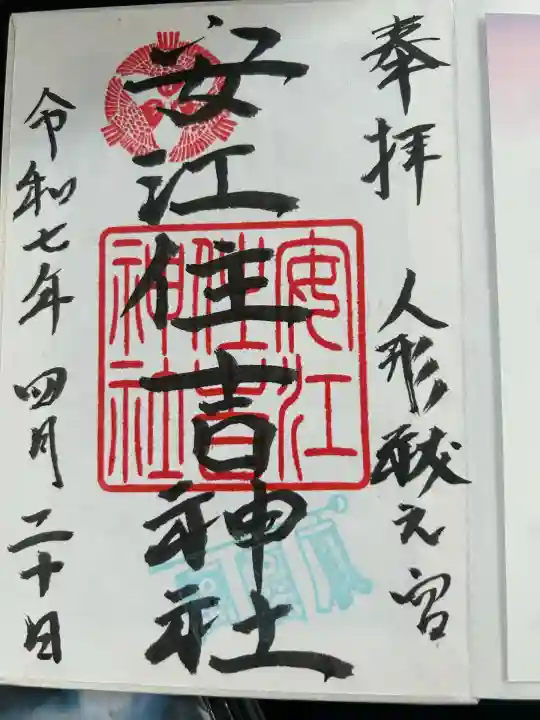 奉拝 人形祓元宮
安江住吉神社
安江
住吉
神社
令和七年 四月 二十日